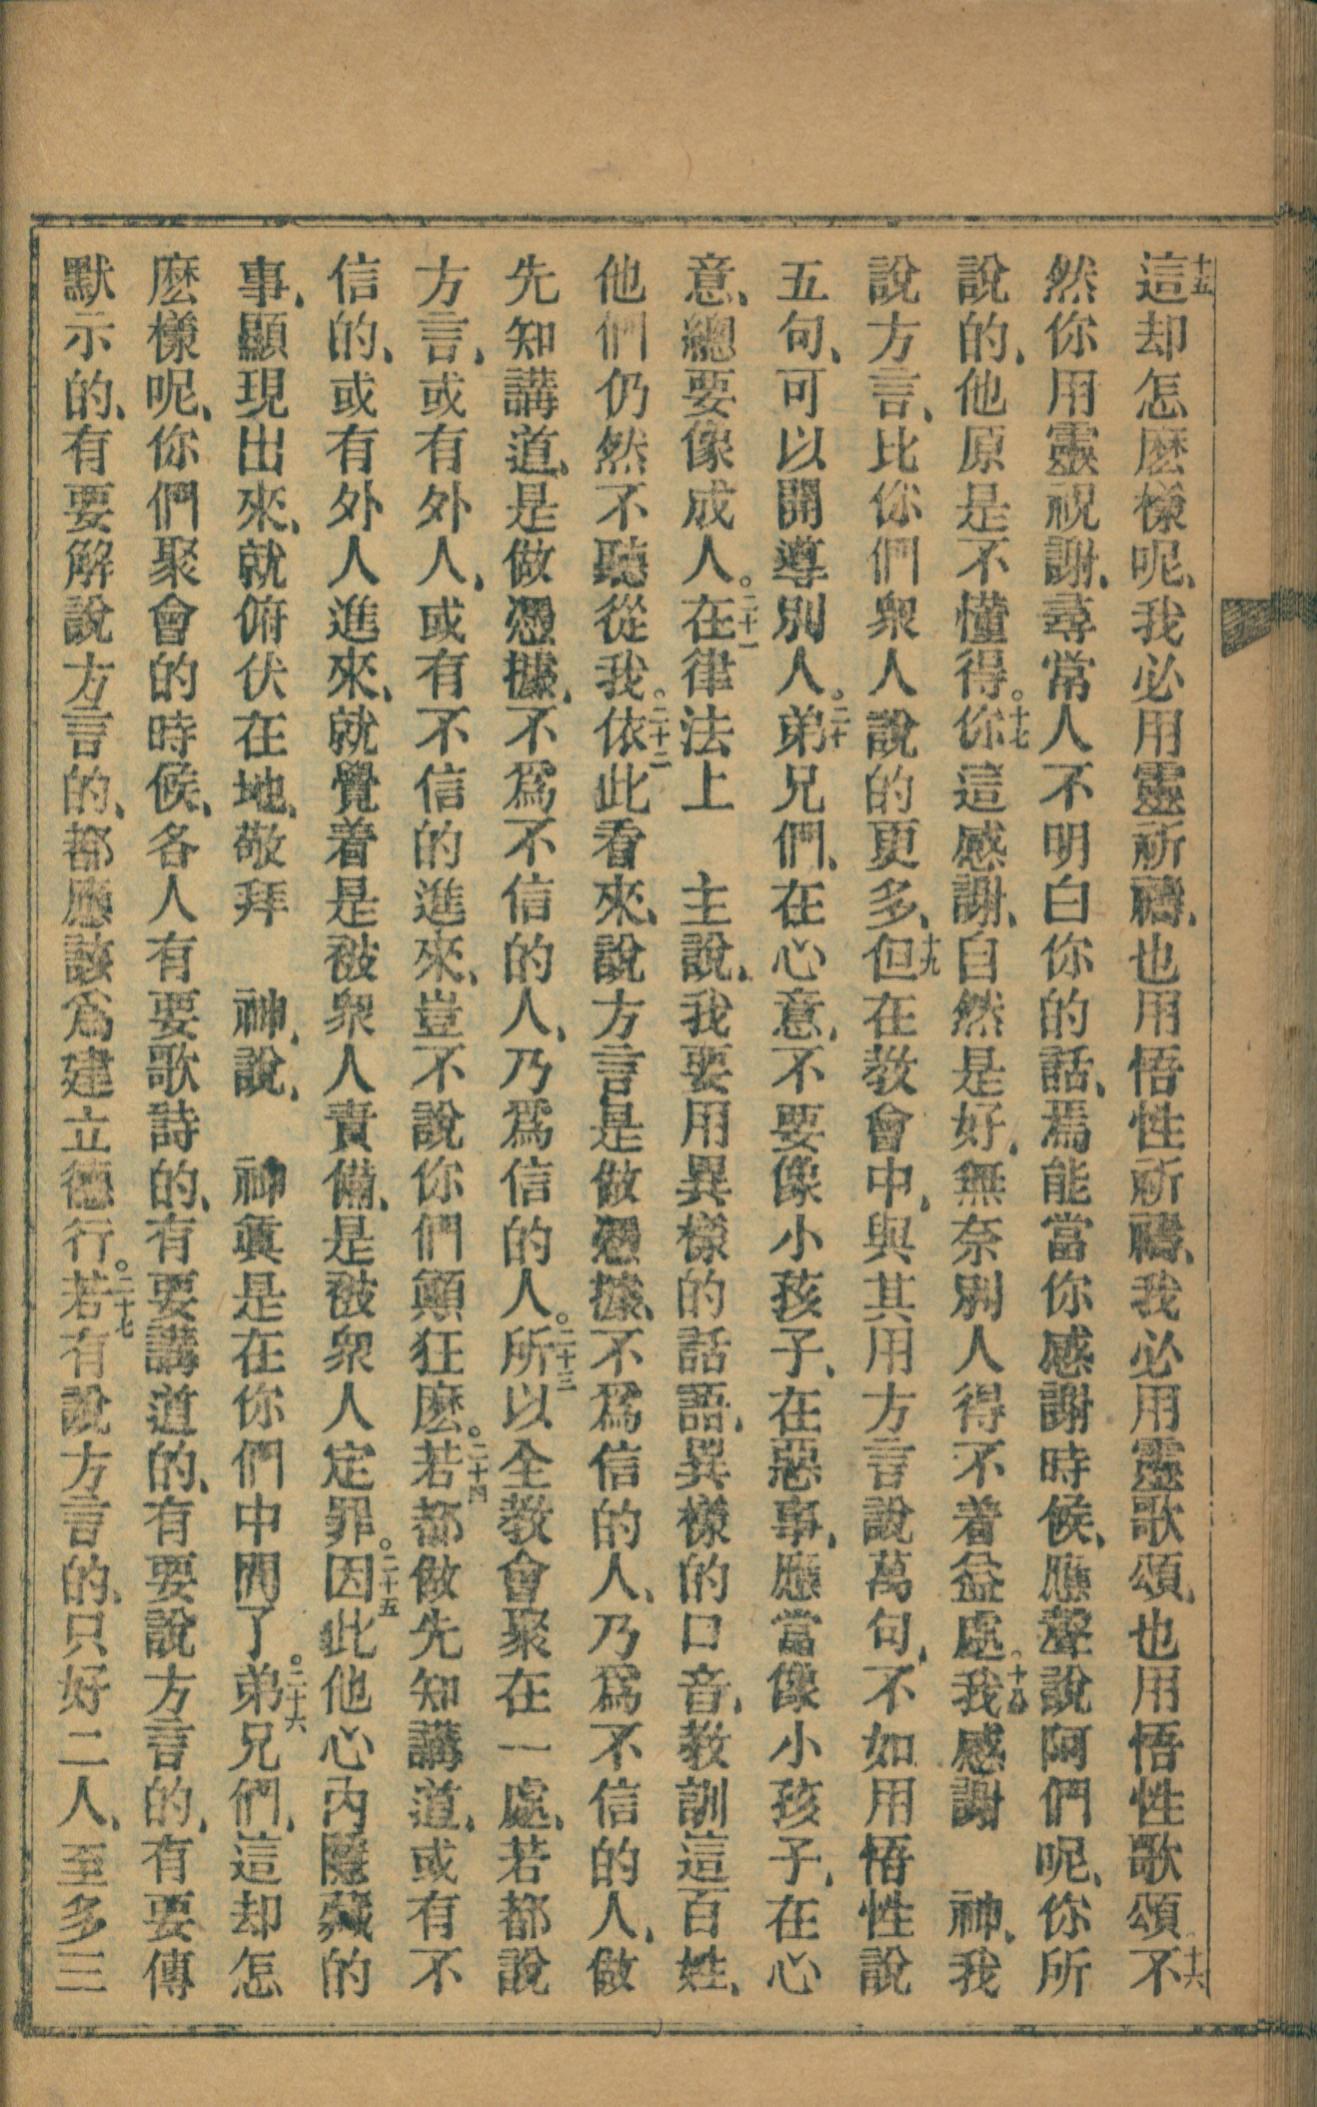 十五這却怎麽樣呢、我必用靈祈禱、也用悟性祈禱、我必用靈歌頌、也用悟性歌頌。十六不
然你用靈祝謝、尋常人不明白你的話、焉能當你感謝時候、應聲說阿們呢、你所
說的、他原是不懂得。十七你這感謝、自然是好、無奈別人得不着益處。十八我感謝　神、我
說方言、比你們衆人說的更多、十九但在教會中、與其用方言說萬句、不如用悟性說
五句、可以開導別人。二十弟兄們、在心意、不要像小孩子、在惡事、應當像小孩子、在心
意、總要像成人。二十一在律法上　主說、我要用異樣的話語、異樣的口音、教訓這百姓、
他們仍然不聽從我。二十二依此看來、說方言是做憑據、不爲信的人、乃爲不信的人、做
先知講道、是做憑據、不爲不信的人、乃爲信的人。二十三所以全教會聚在一處、若都說
方言、或有外人、或有不信的進來、豈不說你們顚狂麽。二十四若都做先知講道、或有不
信的、或有外人進來、就覺着是被衆人責備、是被衆人定罪。二十五因此他心內隱藏的
事、顯現出來、就俯伏在地、敬拜　神、說、　神眞是在你們中間了。二十六弟兄們、這却怎
麽樣呢、你們聚會的時候、各人有要歌詩的、有要講道的、有要說方言的、有要傳
默示的、有要解說方言的、都應該爲建立德行。二十七若有說方言的、只好二人、至多三